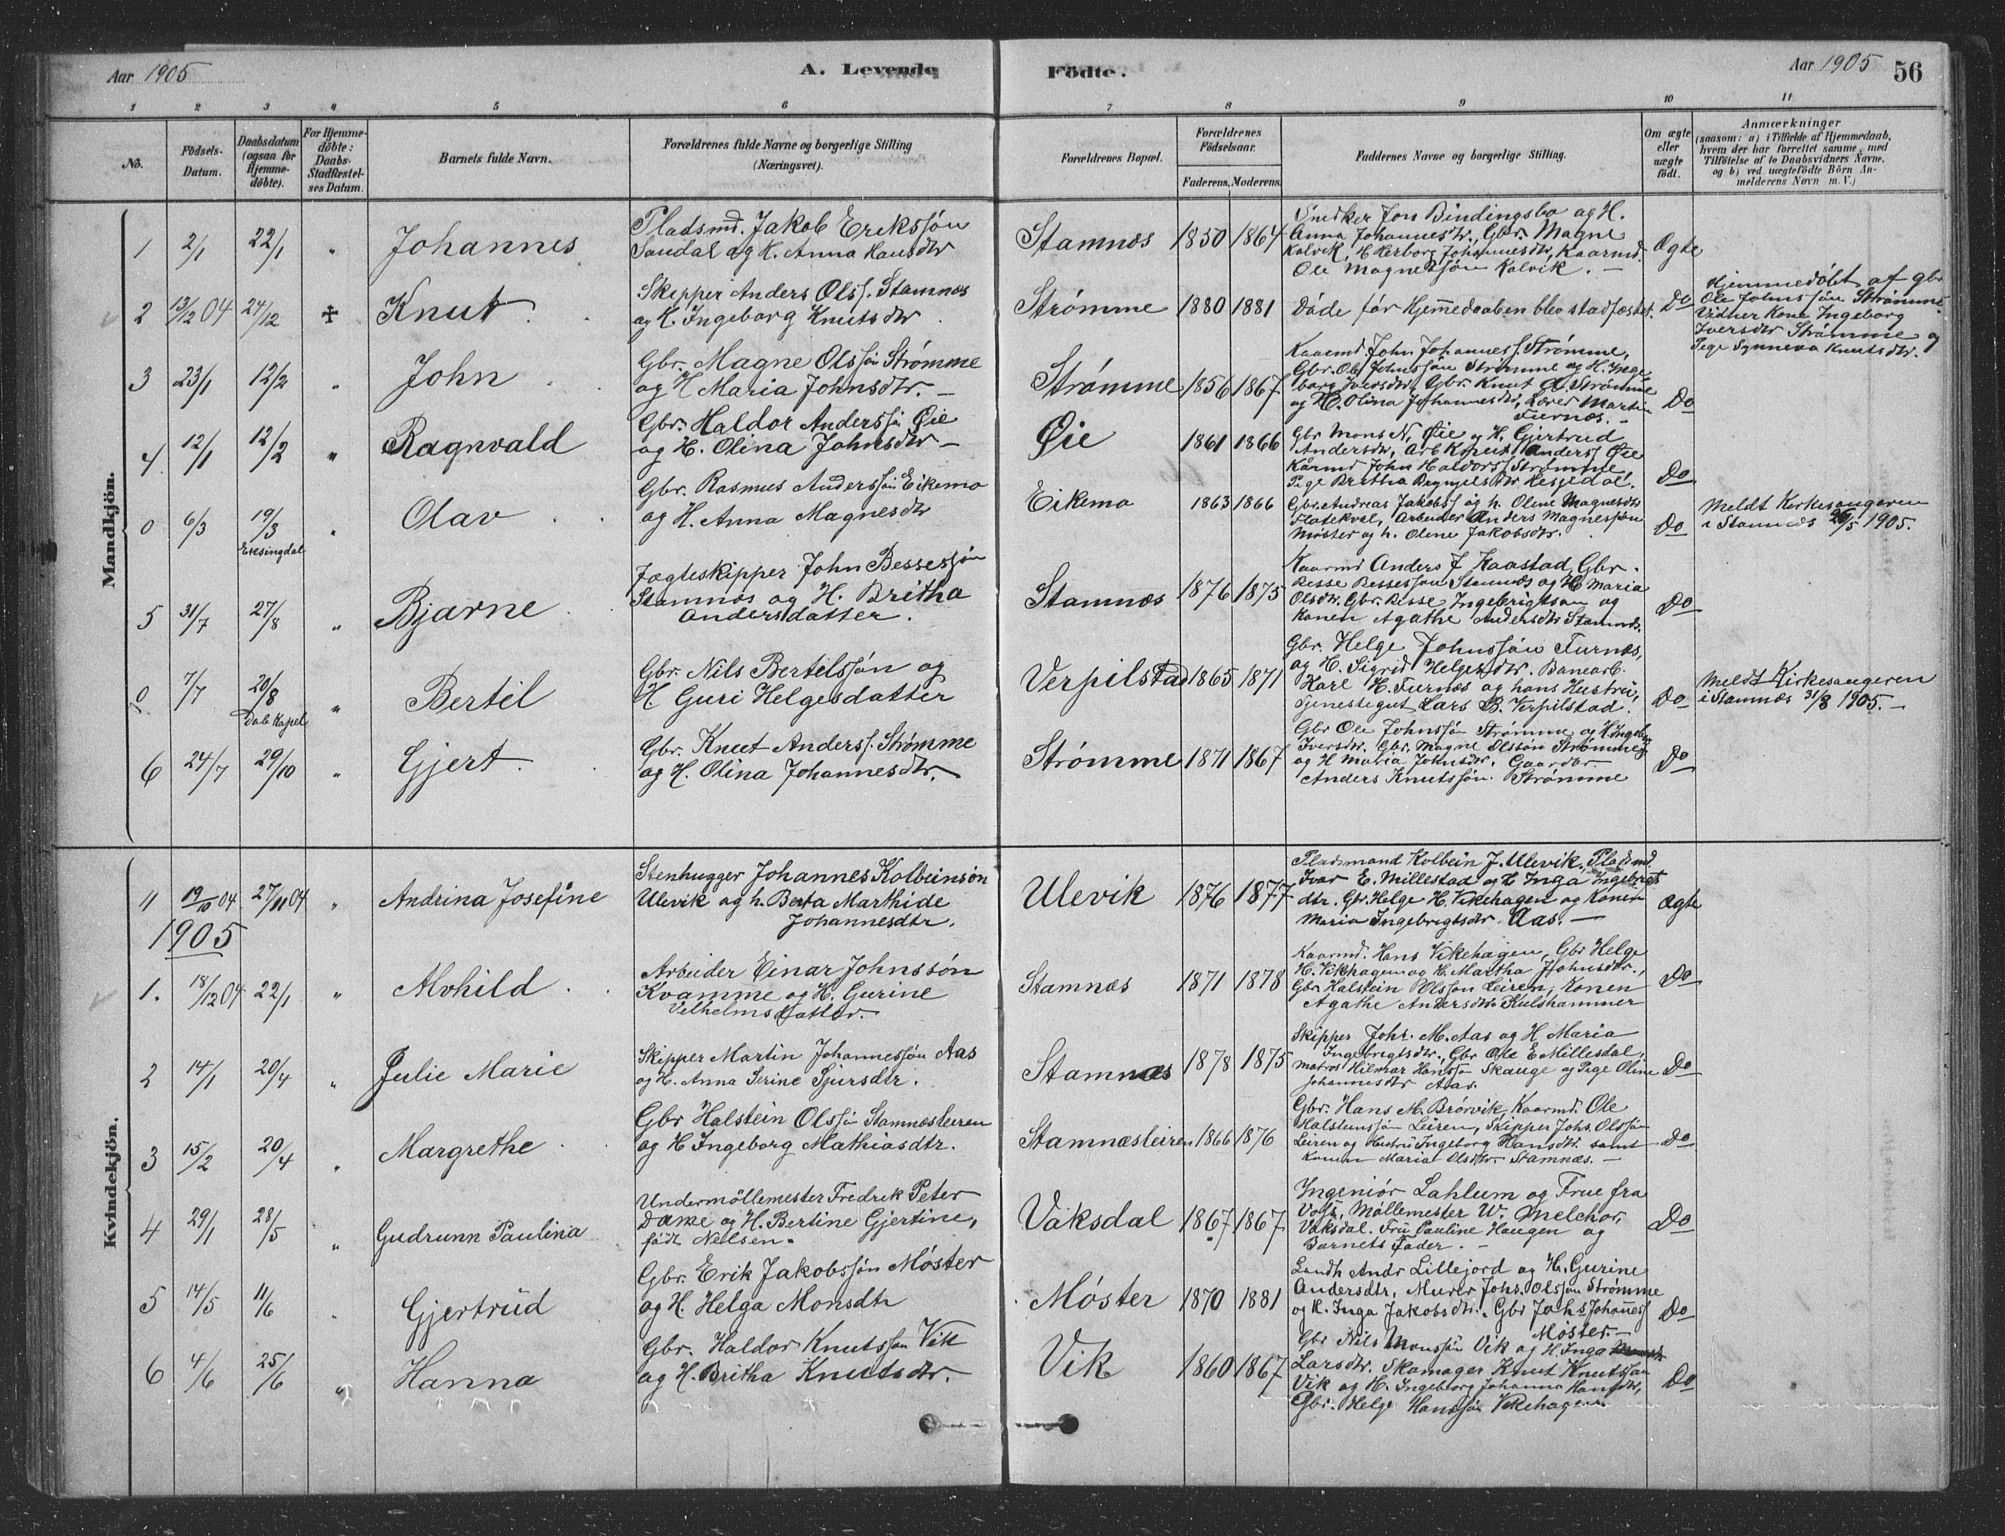 Aar 1905
A. Levende Födte.
Aar 1905 56
1 2 3 4 5 6 7 8 9 10 11
No.
Födsels-Datum.
Daabsdatum (ogsaa for Hjemme-döbte).
For Hjemme-döbte: Daabs-Stadfæstel-ses Datum.
Barnets fulde Navn.
Forældrenes fulde Navne og borgerlige Stilling (Næringsvei).
Forældrenes Bopæl.
Forældrenes Födselsaar.
Faderens. Moderens.
Faddernes Navne og borgerlige Stilling.
Om ægte eller uægte födt.
Anmærkninger
(saasom: a) i Tilfælde af Hjemmedaab, hvem der har forrettet samme, med Tilföielse af to Daabsvidners Navne. og b) ved uægtefödte Börn An-melderens Navn m. V.)
Mandkjön.
1 2/1 22/1 " Johannes
Pladsmd. Jakob Eriksson
Sandal og H. Anna Hansdtr
Stamnæs 1850 1864
Snedker Jon Bindingsbø og H.
Anna Johannesdtr, Gbr. Magne
Kalvik, H. Herborg Johannesdtr, Kaarmd.
Ole Magnessøn Kalvik. –
Ægte
2 13/12 04 24/12 ✠ Knut
Skipper Anders Olss. Stamnæs
og H. Ingeborg Knutsdtr
Strømme 1880 1881
Døde før Hjemmedaaben blev stadfæstet.
Do
Hjemmedöbt af gbr
Ole Johnssøn Strømme.
Vidner Kone Ingeborg
Iversdtr Strømme og
Pige Synneva Knutsdtr.
3 23/1 12/2 " John
Gbr. Magne Olssøn Strømme
og H Maria Johnsdtr. –
Strømme 1856 1867
Kaarmd John Johanness. Strømme,
Gbr. Ole Johnssøn Strømme og H. Inge
borg Iversdtr, Gbr. Knut A. Strømme
og H. Olina Johannesdtr, Lærer Martin
Furnæs. –
Do
4 12/1 12/2 " Ragnvald
Gbr. Haldor Anderssøn Øie
og H. Olina Johnsdtr –
Øie 1861 1866
Gbr Mons N. Øie og H. Gjertrud
Andersdtr, Arb Knut Anderss Øie
Kårmd John Haldorss Strømme,
Pige Britha Brynjelsdtr Hesjedal.
Do
0 6/3 19/3 Eksingdal " Olav
Gbr. Rasmus Anderssøn Eikemo
og H. Anna Magnesdtr
Eikemo 1863 1866
Gbr. Andreas Jakobss og h. Oline Magnesdtr
Flatekval, Arbeider Anders Magnessøn
Møster og h. Oline Jakobsdtr.
Do
Meldt Kirkesangeren
i Stamnæs 26/5 1905.
5 31/7 27/8 " Bjarne
Jægteskipper John Bessessøn
Stamnæs og H. Britha
Andersdatter.
Stamnæs 1876 1875
Kaarmd Anders J Kaastad, Gbr.
Besse Bessessøn Stamnæs og H. Maria
Olsdtr. Gbr. Besse Ingebrigtsøn og
Konen Agathe Andersdtr Stamnæs.
Do
0 7/7 20/8 Dale Kapel " Bertil
Gbr. Nils Bertilssøn og
H. Guri Helgesdatter
Verpilstad 1865 1871
Gbr. Helge Johnssøn Furnæs,
og H. Sigrid Helgesdtr. Banearb.
Karl H. Furnæs og hans Hustru,
Tjenestegut Lars B. Verpilstad.
Do
Meldt Kirkesangeren
i Stamnæs 31/8 1905. –
6 24/7 29/10 " Gjert
Gbr. Knut Anderss. Strømme
og H. Olina Johannesdtr.
Strømme 1871 1867
Gbr Ole Johnssøn Strømme og H Ingeborg
Iversdtr. Gbr. Magne Olssøn Strømme
og H Maria Johnsdtr. Gaardbr
Anders Knutssøn Strømme
Do
Kvindekjön.
11 19/10 04 27/11 04 " Andrina Josefine
Stenhugger Johannes Kolbeinsøn
Ulevik og h. Berta Marthide
Johannesdtr.
Ulevik 1876 1877
Pladsmand Kolbein J. Ulevik, Pladsmd.
Ivar E. Millestad og H Inga Ingebrigts
dtr. Gbr. Helge H. Vikehagen og Konen
Maria Ingebrigtsdtr. Aas. –
Ægte
1905
1. 18/12 04 22/1 " Alvhild
Arbeider Einar Johnssøn
Kvamme og H. Gurine
Vilhelmsdatter.
Stamnæs 1871 1878
Kaarmd. Hans Vikehagen, Gbr Helge
H. Vikhagen og H. Martha Johnsdtr.,
Gbr Halstein Olsson Leiren, Konen
Agathe Andersdtr Kulshammer
Do
2 14/1 20/4 " Julie Marie
Skipper Martin Johannessøn Aas
og H. Anna Serine Sjursdtr.
Stamnæs 1878 1875
Skipper Johs. M. Aas og H Maria
Ingebrigtsdtr., Gbr Ole E Millesdal,
matros Hilmar Hanssøn Skauge og Pige Oline
Johannesdtr Aas.
Do
3 15/2 20/4 " Margrethe
Gbr Halstein Olssøn Stamnæsleiren
og H Ingeborg Mathiasdtr.
Stamnæsleiren 1866 1876
Gbr. Hans M. Brørvik, Kaarmd. Ole
Halsteinssøn Leiren, Skipper Johs. Olssøn
Leiren og Hustru Ingeborg Hansdtr. samt
Konen Maria Olsdtr. Stamnæs. –
Do
4 29/1 28/5 " Gudrunn Paulina
Undermöllemester Fredrik Peter
Daae og H. Bertine Gjertine,
födt Nelsen.
Vaksdal 1867 1867
Ingeniör Lahlum og Frue fra
Voss, Møllemester W. Melchor,
Vaksdal. Fru Pauline Haugen og
Barnets Fader. –
Do
5 14/5 11/6 " Gjertrud
Gbr. Erik Jakobssøn Møster
og H. Helga Monsdtr
Møster 1870 1881
Landh Andr Lillejord og H. Gurine
Andersdtr, Murer Johs. Olssøn Strømme
og H. Inga Jakobsdtr. Gbr Johs Johanness
Møster. –
Do
6 4/6 25/6 " Hanna
Gbr. Haldor Knutssøn Vik
og H. Britha Knutsdtr.
Vik 1860 1867
Gbr Nils Monssøn Vik og H. Inga
Larsdtr. Skomager Knut Knutssøn
Vik og H. Ingeborg Johanna Hansdtr,
Gbr. Helge Hanssøn Vikehagen.
Do